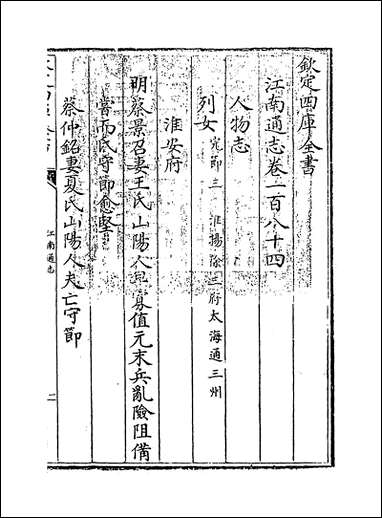 欽定四庫全書
江南通志卷一百八十四
人物志
列女 完節三 淮揚徐三府太海通三州
淮安府
明蔡景召妻王氏山陽人早寡值元末兵亂險阻備
嘗而氏守節愈堅
蔡仲銘妻夏氏山陽人夫亡守節
江南通志